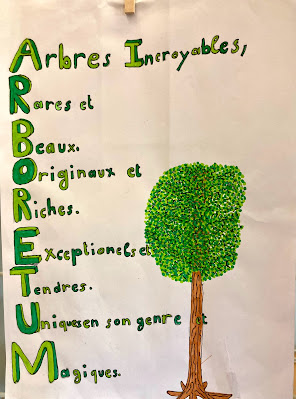 Arbres Incroyables,
Rares et
Beaux.
Originaux et
Riches.
Exceptionels et
Tendres.
Uniques en son genre et
Magiques.